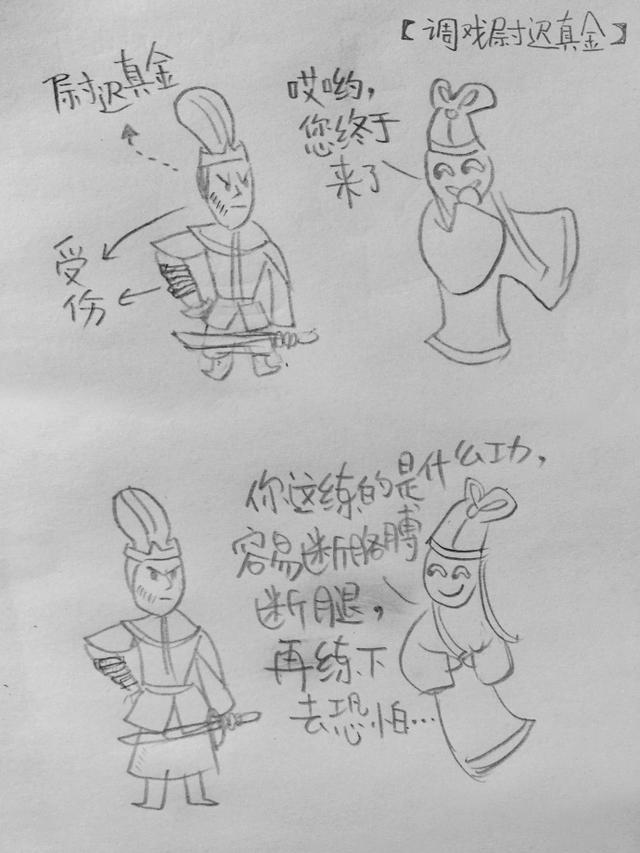 【调戏尉迟真金】
尉迟真金
哎哟，
您终于
来了
受
伤
你这练的是什么功，
容易断胳膊
断腿，
再练下
去恐怕…